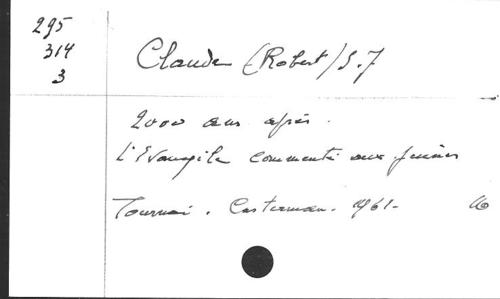 295
314
3
Claude (Robert) S.J
2000 ans après.
L'Evangile commenté aux jeunes
Tournai. Casterman. 1961-